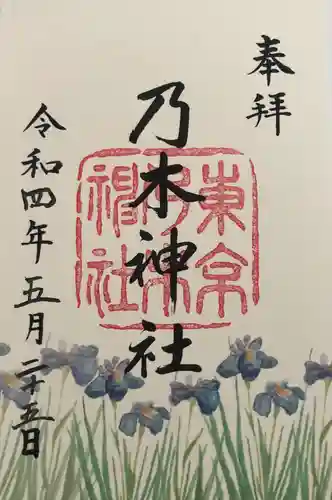 奉拝
乃木神社
東京乃木神社
令和四年五月二十五日